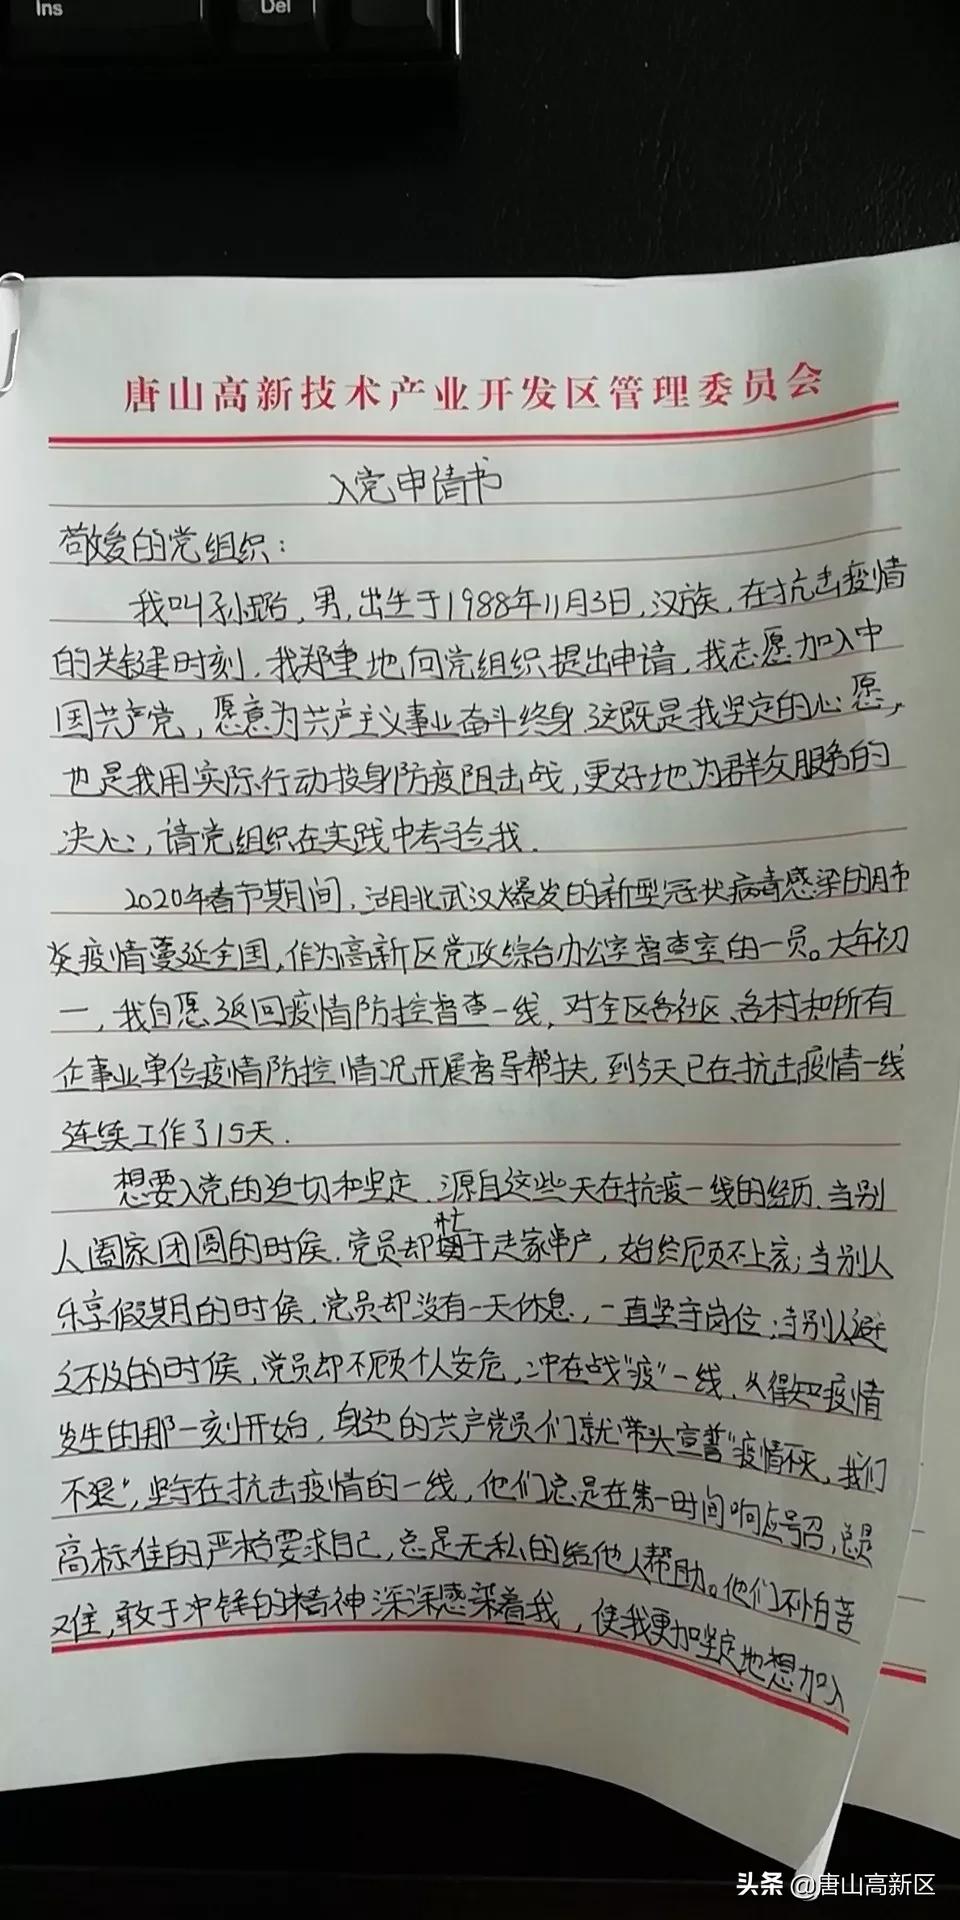 Ins
Del
唐山高新技术产业开发区管理委员会
入党申请书
敬爱的党组织：
我叫孙璐，男，出生于1988年11月3日，汉族，在抗击疫情
的关键时刻，我郑重地向党组织提出申请，我志愿加入中
国共产党，愿意为共产主义事业奋斗终身.这既是我坚定的心愿，
也是我用实际行动投身防疫阻击战，更好地为群众服务的
决心，请党组织在实践中考验我.
2020年春节期间，湖北武汉爆发的新型冠状病毒感染的肺
炎疫情蔓延全国，作为高新区党政综合办公室督查室的一员。大年初
一，我自愿返回疫情防控督查一线，对全区各社区、各村和所有
企事业单位疫情防控情况开展督导帮扶，到今天已在抗击疫情一线
连续工作了15天.
想要入党的迫切和坚定，源自这些天在抗疫一线的经历.当别
人阖家团圆的时候，党员却忙于走家串户，始终顾不上家；当别人
乐享假期的时候，党员却没有一天休息，一直坚守岗位；当别人避
之不及的时候，党员却不顾个人安危，冲在战“疫”一线.从得知疫情
发生的那一刻开始，身边的共产党员们就带头宣誓“疫情不灭，我们
不退”，坚守在抗击疫情的一线，他们总是在第一时间响应号召，总是
高标准的严格要求自己，总是无私的给他人帮助。他们不怕苦
难，敢于冲锋的精神深深感染着我，使我更加坚定地想加入
头条 @唐山高新区